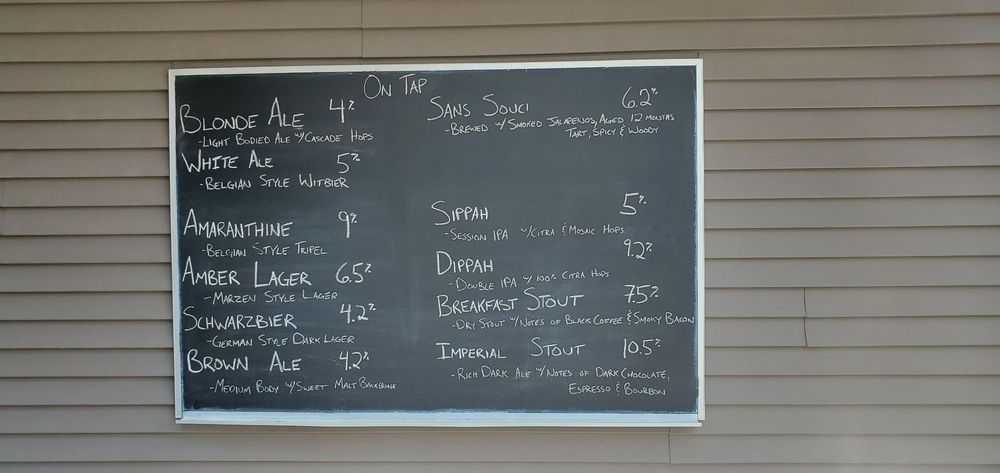 On Tap
Blonde Ale 4%
-Light Bodied Ale w/Cascade Hops
White Ale 5%
-Belgian Style Witbier
Amaranthine 9%
-Belgian Style Tripel
Amber Lager 6.5%
-Marzen Style Lager
Schwarzbier 4.2%
-German Style Dark Lager
Brown Ale 4.2%
-Medium Body w/Sweet Malt Backbone
Sans Souci 6.2%
-Brewed w/Smoked Jalapenos, Aged 12 months
Tart, Spicy & Woody
Sippah 5%
-Session IPA w/Citra & Mosaic Hops
Dippah 9.2%
-Double IPA w/ 100% Citra Hops
Breakfast Stout 7.5%
-Dry Stout w/Notes of Black Coffee & Smoky Bacon
Imperial Stout 10.5%
-Rich Dark Ale w/Notes of Dark Chocolate,
Espresso & Bourbon